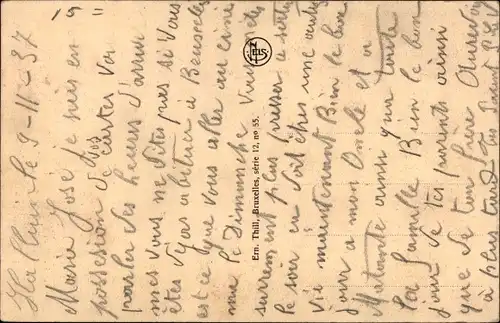 Ha Pleine le 9-11-37
Marie José je suis en
possession de vos cartes vous
parler des heures d'arriv
mes vous ne dites pas si vous
êtes dyas abituer à Beuxselles
est ce que vous aller au cine
ma le Dimanche vu
surement plus presser a sortir
le soir en soit ches une autre
vie maintenant Bien le bon
jour a mon Oncle et a
Matante ainsi qua toute
la famille Bien le bon
jour de tes parents ainsi
que de ton frère
à plus tard
Ern. Thill, Bruxelles, série 12, no 55.